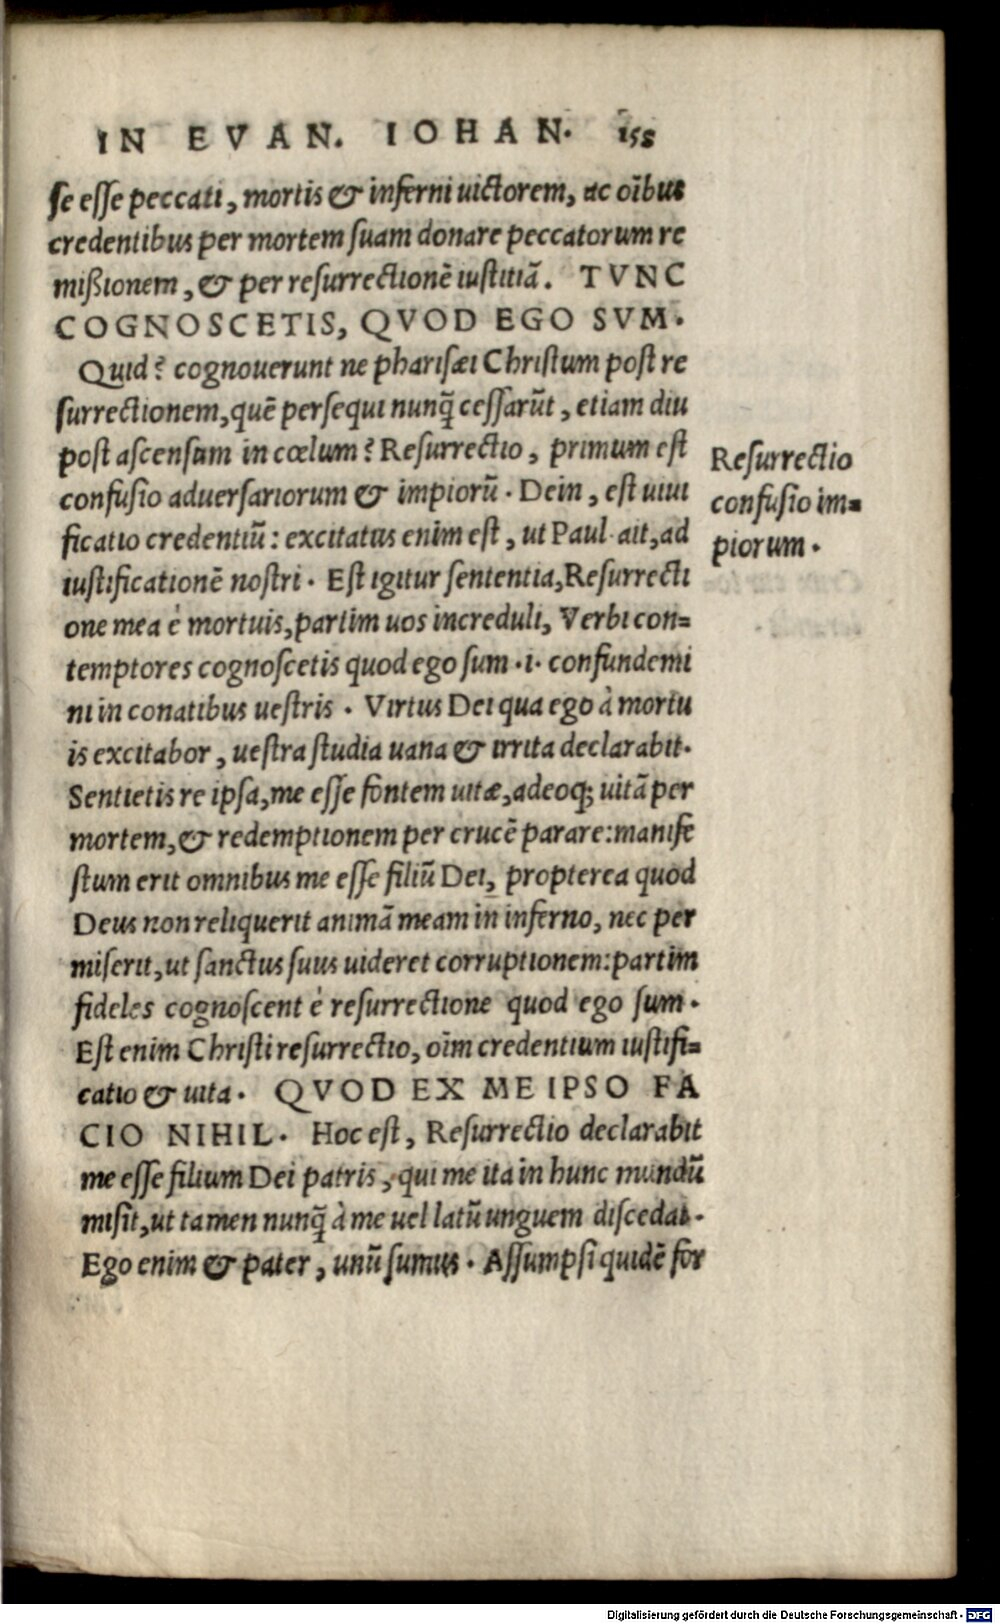 IN EVAN. IOHAN. 158
se esse peccati, mortis & inferni uictorem, ac oībus
credentibus per mortem suam donare peccatorum re
mißionem, & per resurrectionē iustitiā. TVNC
COGNOSCETIS, QVOD EGO SVM.
Quid? cognouerunt ne pharisæi Christum post re
surrectionem, quē persequi nunq̄ cessarūt, etiam diu
post ascensum in cœlum? Resurrectio, primum est
confusio aduersariorum & impiorū. Dein, est uiui
ficatio credentiū: excitatus enim est, ut Paul. ait, ad
iustificationē nostri. Est igitur sententia, Resurrecti
one mea è mortuis, partim uos increduli, Verbi con=
temptores cognoscetis quod ego sum .i. confundemi
ni in conatibus uestris. Virtus Dei qua ego à mortu
is excitabor, uestra studia uana & irrita declarabit.
Sentietis re ipsa, me esse fontem uitæ, adeoq; uitā per
mortem, & redemptionem per crucē parare: manife
stum erit omnibus me esse filiū Dei, propterea quod
Deus non reliquerit animā meam in inferno, nec per
miserit, ut sanctus suus uideret corruptionem: partim
fideles cognoscent è resurrectione quod ego sum.
Est enim Christi resurrectio, oīm credentium iustifi=
catio & uita. QVOD EX ME IPSO FA
CIO NIHIL. Hoc est, Resurrectio declarabit
me esse filium Dei patris, qui me ita in hunc mundū
misit, ut tamen nunq̄ à me uel latū unguem discedat.
Ego enim & pater, unū sumus. Assumpsi quidē for
Resurrectio
confusio im=
piorum.
Digitalisierung gefördert durch die Deutsche Forschungsgemeinschaft - DFG